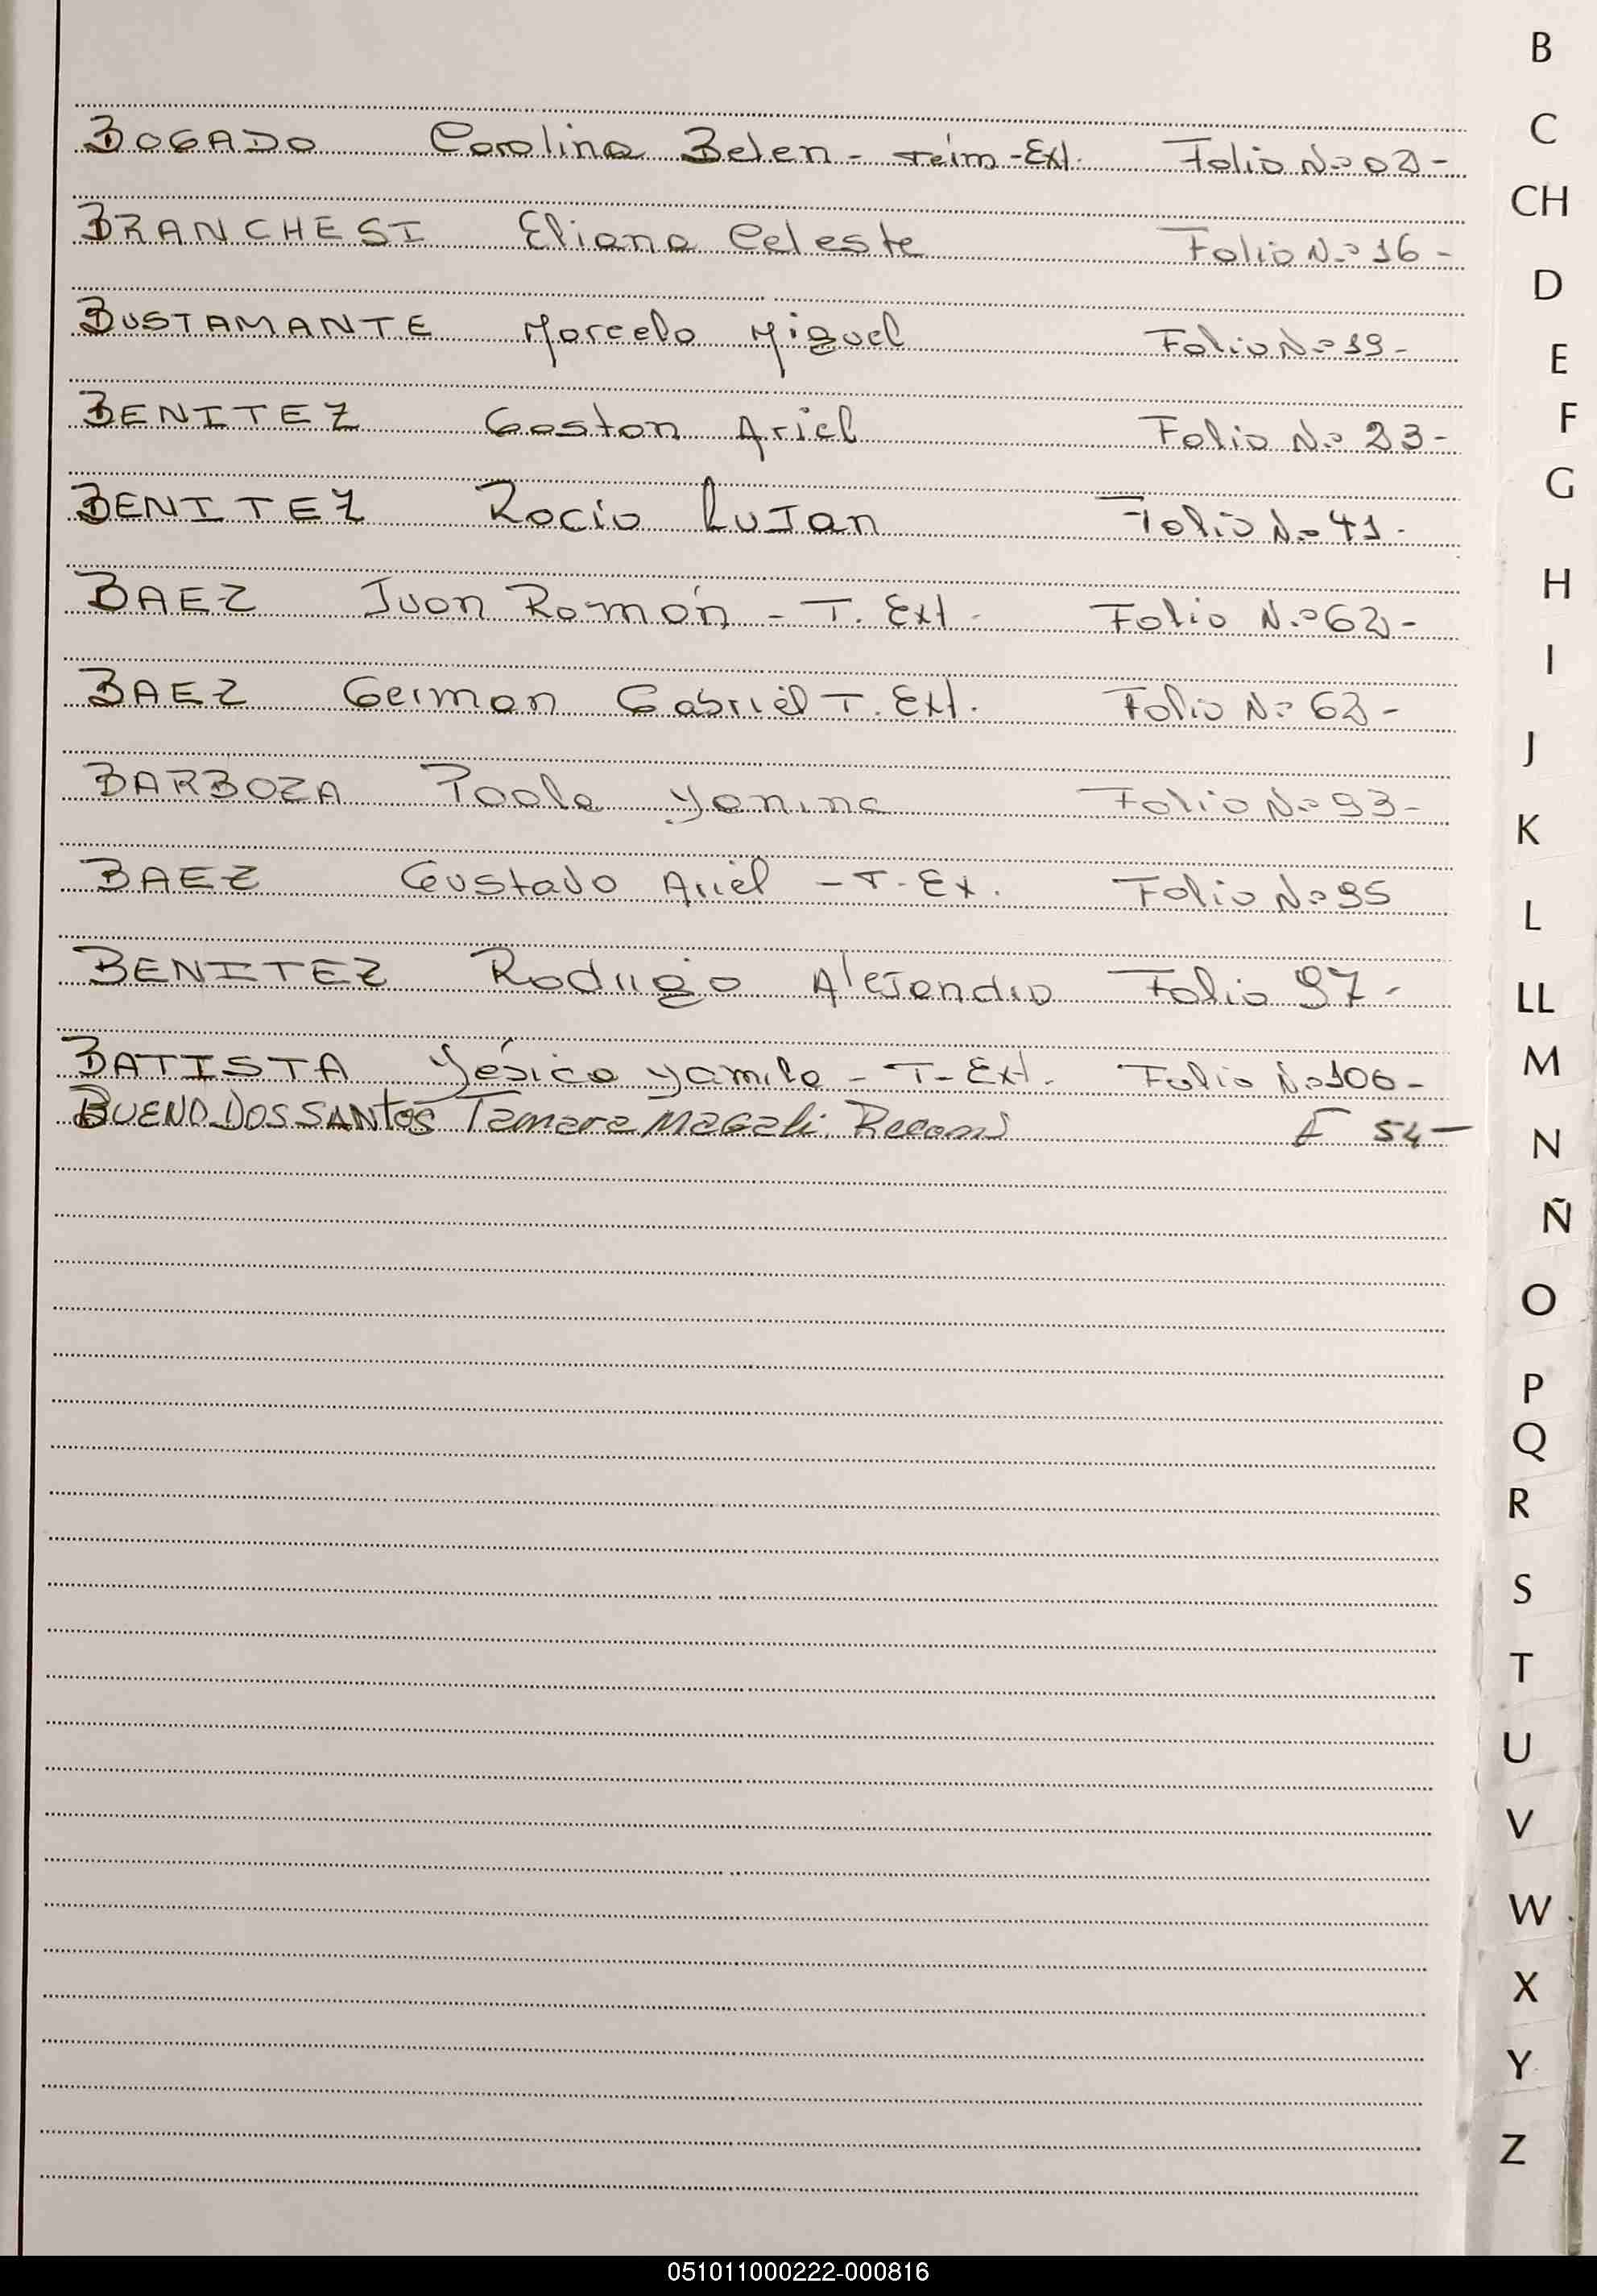 BOGADO Carolina Belen - Térm - Ext. Folio N.º 02 -
BRANCHESI Eliana Celeste Folio N.º 16 -
BUSTAMANTE Marcelo Miguel Folio N.º 19 -
BENITEZ Gaston Ariel Folio N.º 23 -
BENITEZ Rocio LuJan Folio N.º 41 -
BAEZ Juan Román - T. Ext - Folio N.º 62 -
BAEZ German Gabriel T. Ext. Folio N.º
BARBOZA Paola Yanina Folio N.º 93 -
BAEZ Gustavo Ariel - T. Ex. Folio N.º 95
BENITEZ Rodrigo AleJandro Folio 97 -
BATISTA Yésica Yamila - T - Ext. Folio N.º 106 -
BUENO DOS SANtos Tamara MaGali F 54 -
B
C
CH
D
E
F
G
H
I
J
K
L
LL
M
N
Ñ
O
P
Q
R
S
T
U
V
W
X
Y
Z
051011000222-000816